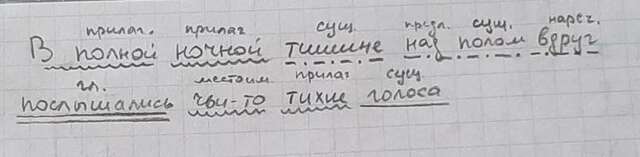 прилаг. прилаг сущ. предл. сущ. нареч.
В полной ночной тишине над полом вдруг
гл. местоим. прилаг сущ
послышались чьи-то тихие голоса